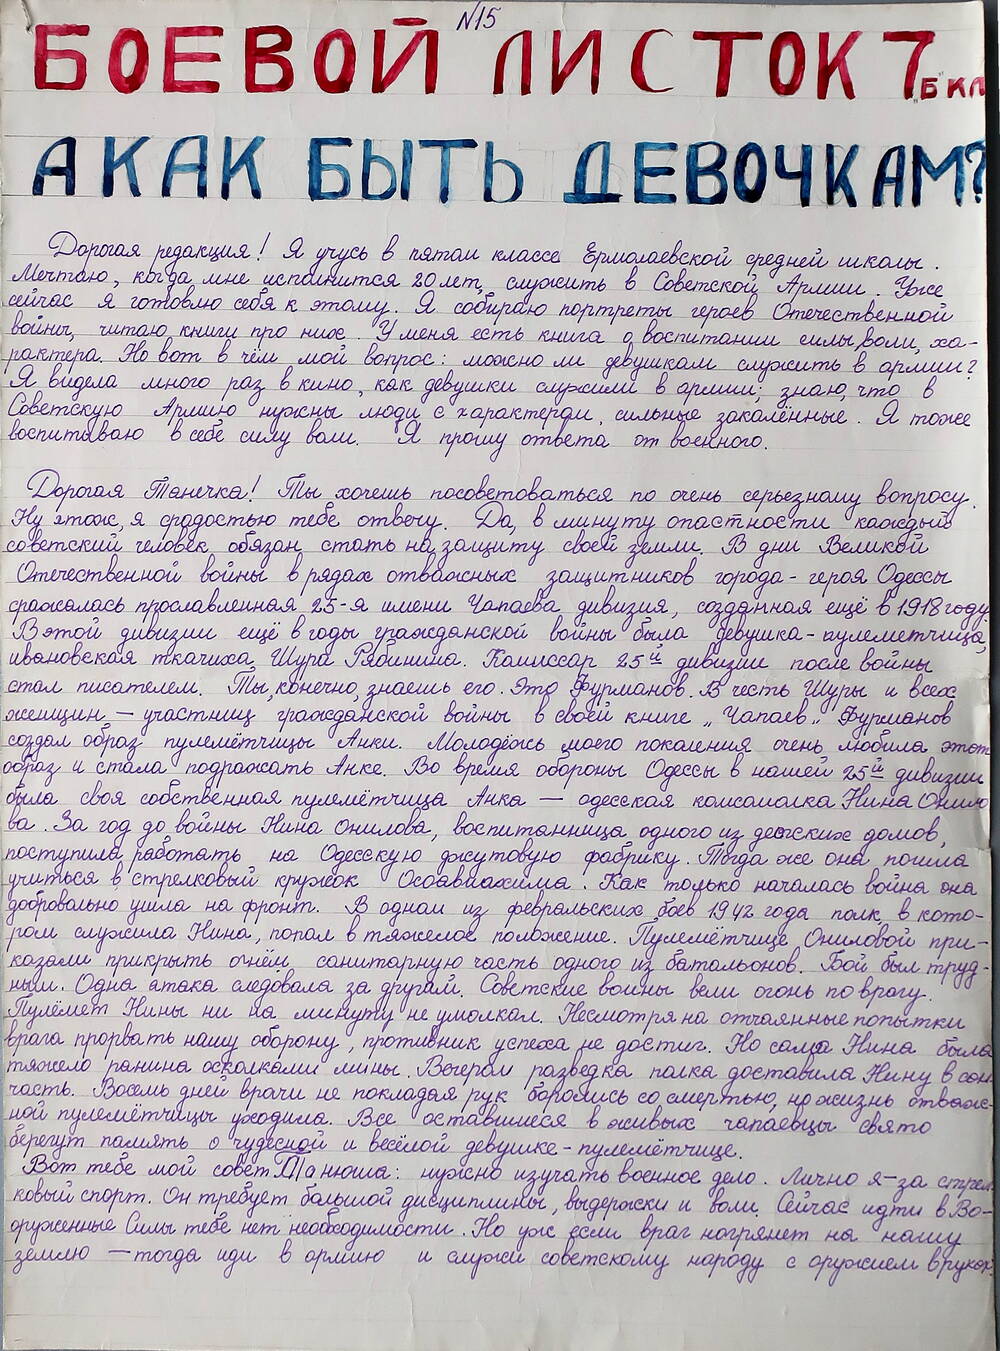 №15
БОЕВОЙ ЛИСТОК 7 "Б" КЛ
А КАК БЫТЬ ДЕВОЧКАМ?
Дорогая редакция! Я учусь в пятом классе Ермолаевской средней школы.
Мечтаю, когда мне исполнится 20 лет, служить в Советской Армии. Уже
сейчас я готовлю себя к этому. Я собираю портреты героев Отечественной
войны, читаю книги про них. У меня есть книга о воспитании силы воли, ха-
рактера. Но вот в чём мой вопрос: можно ли девушкам служить в армии?
Я видела много раз в кино, как девушки служили в армии; знаю, что в
Советскую Армию нужны люди с характером, сильные закалённые. Я тоже
воспитываю в себе силу воли. Я прошу ответа от военного.
Дорогая Танечка! Ты хочешь посоветоваться по очень серьезному вопросу.
Ну что ж, я с радостью тебе отвечу. Да, в минуту опастности каждый
советский человек обязан стать на защиту своей земли. В дни Великой
Отечественной войны в рядах отважных защитников города-героя Одессы
сражалась прославленная 25-я имени Чапаева дивизия, созданная ещё в 1918 году.
В этой дивизии ещё в годы гражданской войны была девушка-пулеметчица,
ивановская ткачиха Шура Рябинина. Комиссар 25й дивизии после войны
стал писателем. Ты, конечно, знаешь его. Это Фурманов. В честь Шуры и всех
женщин — участниц гражданской войны в своей книге „Чапаев„ Фурманов
создал образ пулемётчицы Анки. Молодёжь моего поколения очень любила этот
образ и стала подражать Анке. Во время обороны Одессы в нашей 25й дивизии
была своя собственная пулемётчица Анка — одесская комсомолка Нина Онило
ва. За год до войны Нина Онилова, воспитанница одного из детских домов,
поступила работать на Одесскую джутовую фабрику. Тогда же она пошла
учиться в стрелковый кружок Осоавиахима. Как только началась война она
добровально ушла на фронт. В одном из февральских боев 1942 года полк, в кото-
ром служила Нина, попал в тяжелое положение. Пулемётчице Ониловой при-
казали прикрыть огнём санитарную часть одного из батальонов. Бой был труд-
ным. Одна атака следовала за другой. Советские воины вели огонь по врагу.
Пулемет Нины ни на минуту не умолкал. Несмотря на отчаянные попытки
врага прорвать нашу оборону, противник успеха не достиг. Но сама Нина была
тяжело ранина осколками мины. Вечером разведка полка доставила Нину в сан
часть. Восемь дней врачи не покладая рук боролись со смертью, но жизнь отваж-
ной пулемётчицы уходила. Все оставшиеся в живых чапаевцы свято
берегут память о чудесной и весёлой девушке-пулемётчице.
Вот тебе мой совет Танюша: нужно изучать военное дело. Лично я-за стрел
ковый спорт. Он требует большой дисциплины, выдержки и воли. Сейчас идти в Во-
оруженные Силы тебе нет необходимости. Но уж если враг нагрянет на нашу
землю — тогда иди в армию и служи советскому народу с оружием в руках.